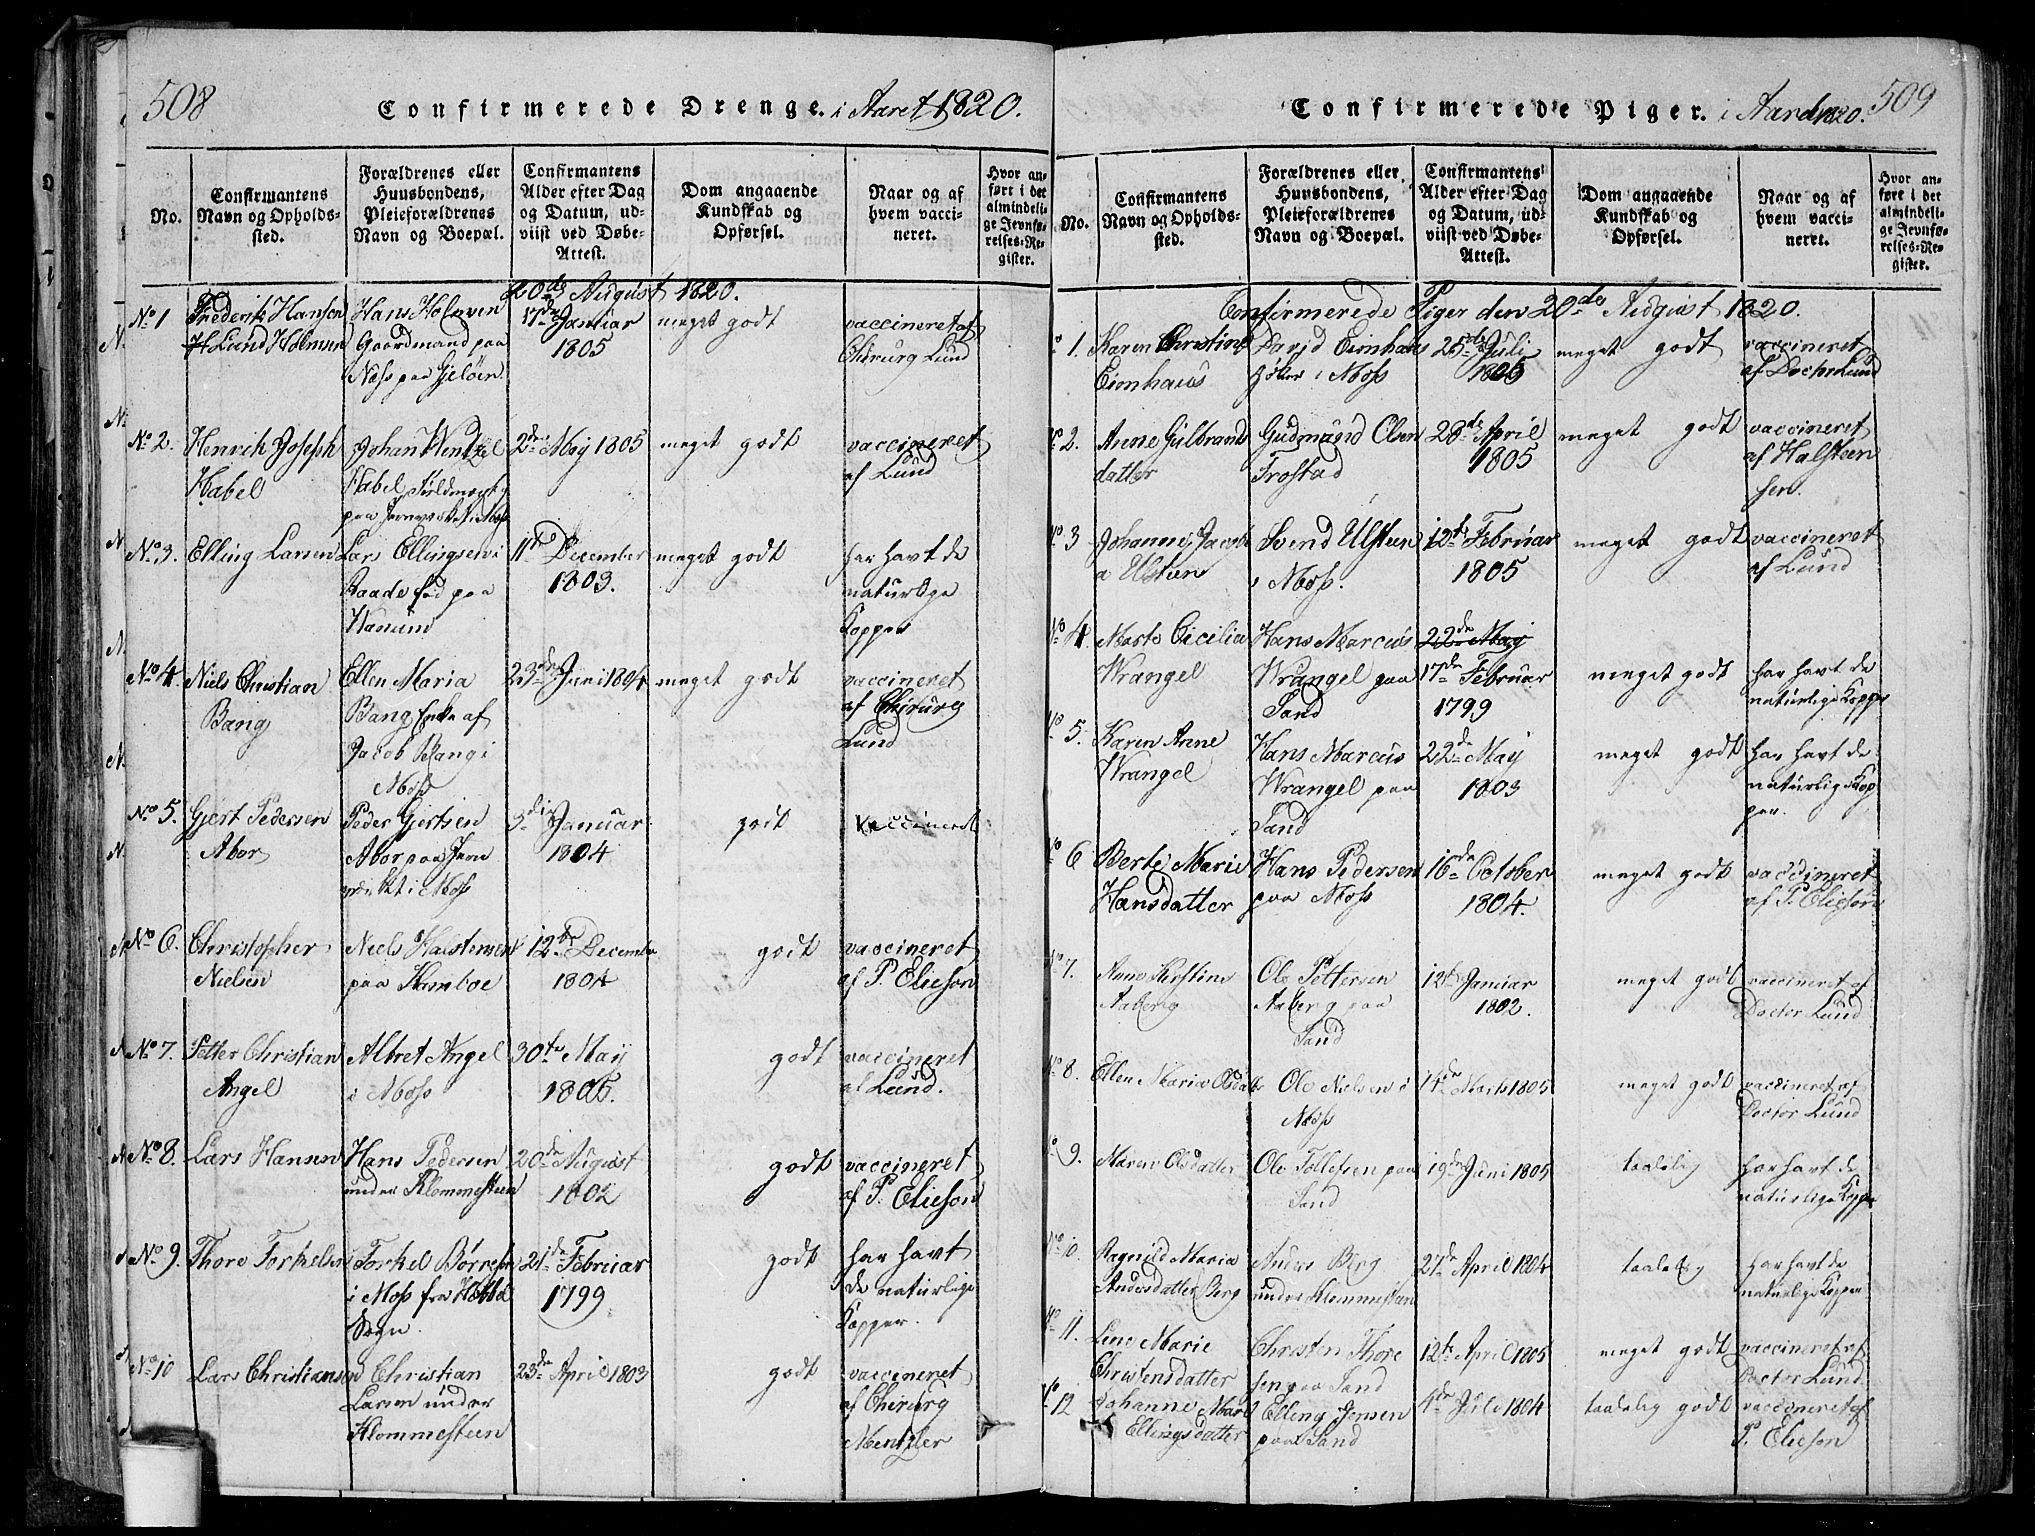 508
Confirmerede Drenge. i Aaret 1820.
No.
Confirmantens
Navn og Opholds-
sted.
Forældrenes eller
Huusbondens,
Pleieforældrenes
Navn og Boepæl.
Confirmantens
Alder efter Dag
og Datum, ud-
viist ved Døbe-
Attest.
Dom angaaende
Kundskab og
Opførsel.
Naar og af
hvem vacci-
neret.
Hvor an-
ført i det
almindeli-
ge Jevnfø-
relses-Re-
gister.
20de August 1820.
No 1
Frederik Hansen
Lund Holmsen
Hans Holmsen
Gaardmand paa
Næss paa Gjeløen.
17de Januar
1805
meget godt
vaccineret af
Chirurg Lund
No 2.
Henrik Joseph
Habel
Johan Wentzel
Habel
paa Jernværket i Moss
2de May 1805
meget godt
vaccineret
af Lund
No 3.
Elling Larsen
Lars Ellingsen i
Raade fød paa
Wanum
11te December
1803.
meget godt
har havt de
naturlige
Kopper
No 4.
Niels Christian
Bang
Ellen Maria
Bang Enke af
Jacob Bang i
Moss
23de Juni 1804
meget godt
vaccineret
af Chirurg
Lund
No 5.
Gjert Pedersen
Abor
Peder Gjertsen
Abor paa Jern
værket i Moss
5de Januar
1804
godt
vaccineret
No 6.
Christopher
Nielsen
Niels Halstensen
paa Kamboe
12te December
1804
godt
vaccineret
af P. Elieson
No 7.
Petter Christian
Angel
Albret Angel
i Moss
30te May
1805.
godt
vaccineret
af Lund.
No 8.
Lars Hansen
Hans Pedersen
under Klommesteen
20de August
1802
godt
vaccineret
af P. Elieson
No 9.
Thore Torkelsen
Torkel Børresen
i Moss fra Hobbel
Sogn.
21de Februar
1799
godt
har havt
de naturlige
Kopper.
No 10
Lars Christiansen
Christian
Larsen under
Klommesteen
23de April 1803
godt
vaccineret
af Chirurg
Mentzler
Confirmerede Piger. i Aaret 1820.
509
No.
Confirmantens
Navn og Opholds-
sted.
Forældrenes eller
Huusbondens,
Pleieforældrenes
Navn og Boepæl.
Confirmantens
Alder efter Dag
og Datum, ud-
viist ved Døbe-
Attest.
Dom angaaende
Kundskab og
Opførsel.
Naar og af
hvem vacci-
neret.
Hvor an-
føre i det
almindeli-
ge Jevnfø-
relses-Re-
gister.
Confirmerede Piger den 20de August 1820.
No 1.
Karen Christine
Eimhaus
David Eimhaus
i Moss
25de Juli
1805
meget godt
vaccineret
af Doctor Lund
No 2.
Anne Gulbrands
datter
Gudmund Olsen
Trostad
28de April
1805
meget godt
vaccineret
af Halsteen
sen.
No 3
Johanne Jacob
a Ulsteen
Svend Ulsteen
i Moss.
12te Februar
1805
meget godt
vaccineret
af Lund
No 4.
Marte Cicilia
Wrangel
Hans Marcus
Wrangel paa
Sand
22de May
17de Februar
1799
meget godt
har havt de
naturlige Kopper
No 5.
Karen Anne
Wrangel
Hans Marcus
Wrangel paa
Sand
22de May
1803
meget godt
har havt de
naturlige Kop
per.
No 6
Berte Marie
Hansdatter
Hans Pedersen
paa Moss
16de October
1804.
meget godt
vaccineret
af P. Elieson
No 7.
Anne Kirstine
Aaberg
Ole Pettersen
Aaberg paa
Sand
12te Januar
1802.
meget godt
vaccineret af
Doctor Lund
No 8.
Ellen Maria Olsdatter
Ole Nielsen i
Moss
14de Marts 1805
meget godt
vaccineret af
Doctor Lund
No 9.
Maren Olsdatter
Ole Tollefsen paa
Sand
19de Juni 1805
taalelig
har havt de
naturlige Kopper
No 10.
Ragnild Maria
Andersdatter Berg
Anders Berg
under Klommesteen
27de April 1804
taalelig
har havt de
naturlige Kopper
No 11.
Line Marie
Christensdatter
Christen Thore
sen paa Sand
12te April 1805
meget godt
vaccineret af
Doctor Lund.
No 12
Johanne Marie
Ellingsdatter
Elling Jensen
paa Sand
4de Juli 1804
taalelig godt
vaccineret af
P. Elieson